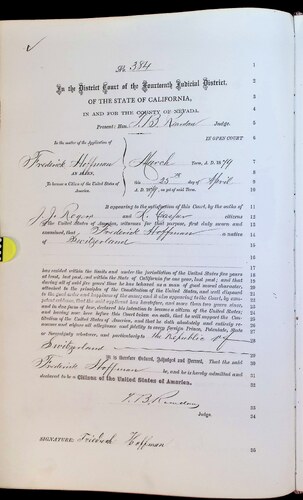 No. 384
In the District Court of the Fourteenth Judicial District,
OF THE STATE OF CALIFORNIA,
IN AND FOR THE COUNTY OF NEVADA.
Present: Hon. J. B. Reardan Judge.
IN OPEN COURT
In the matter of the Application of
Frederick Hoffman
AN ALIEN,
To become a Citizen of the United States of
America.
March Term, A. D. 1879
this 25th day of April
A. D. 1879, as yet of said Term.
It appearing to the satisfaction of this Court, by the oaths of
J. J. Rogers and citizens
of the United States of America, witnesses for that purpose, first duly sworn and
examined, that Frederick Hoffman a native
of Switzerland
has resided within the limits and under the jurisdiction of the United States five years
at least, last past, and within the State of California for one year, last past; and that
during all of said five years' time he has behaved as a man of good moral character,
attached to the principles of the Constitution of the United States, and well disposed
to the good order and happiness of the same; and it also appearing to the Court, by com-
petent evidence, that the said applicant has heretofore, and more than two years since,
and in due form of law, declared his intention to become a Citizen of the United States,
and having now here before this Court taken an oath, that he will support the Con-
stitution of the United States of America, and that he doth absolutely and entirely re-
nounce and abjure all allegiance and fidelity to every foreign Prince, Potentate, State
or Sovereignty whatever, and particularly to the Republic of
Switzerland
It is therefore Ordered, Adjudged and Decreed, That the said
Frederick Hoffman be, and he is hereby admitted and
declared to be a Citizen of the United States of America.
J. B. Reardan
Judge
SIGNATURE: Friedrich Hoffman